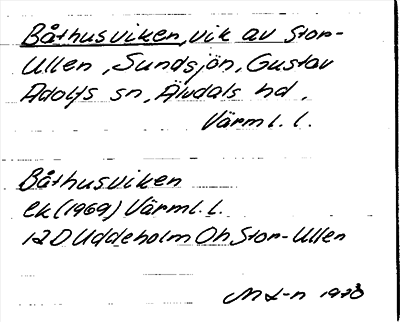 Båthusviken, vik av Stor-
Ullen, Sundsjön, Gustav
Adolfs sn, Älvdals hd,
Värml. l.
Båthusviken
ek (1969) Värml. l.
12D Uddeholm Öh Stor-Ullen
1973